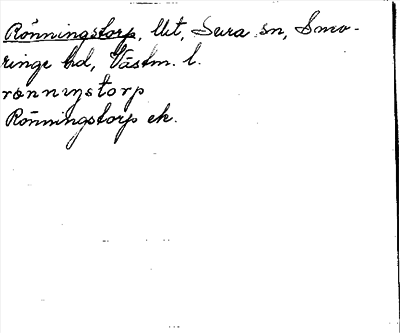 Rönningstorp, Ut, Sura sn, Smo-
ringe hd, Västm. l.
rønnıŋstorp
Rönningstorp ek.